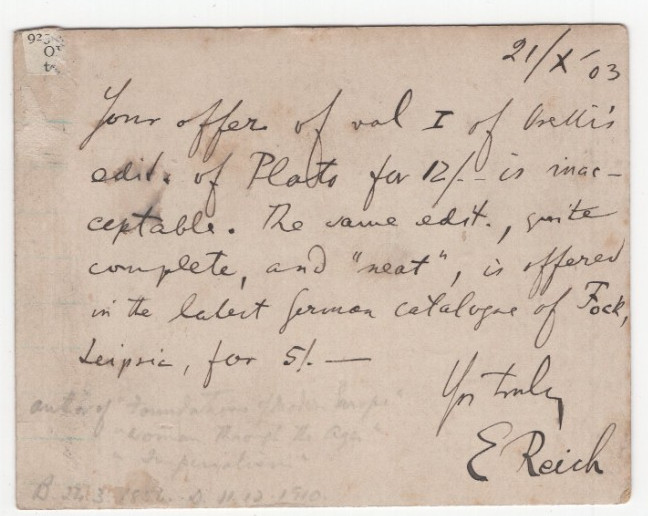 923
O
t
21/X 03
Your offer of vol I of Orelli's
edit. of Plato for 12/- is inac-
ceptable. The same edit., quite
complete, and "neat", is offered
in the latest German catalogue of Fock,
Leipsic, for 5/. —
Yrs truly
E Reich
author of "Foundations of Modern Europe"
"Woman through the Ages"
" Imperialism "
B 24.3.1854. D. 11.12.1910.